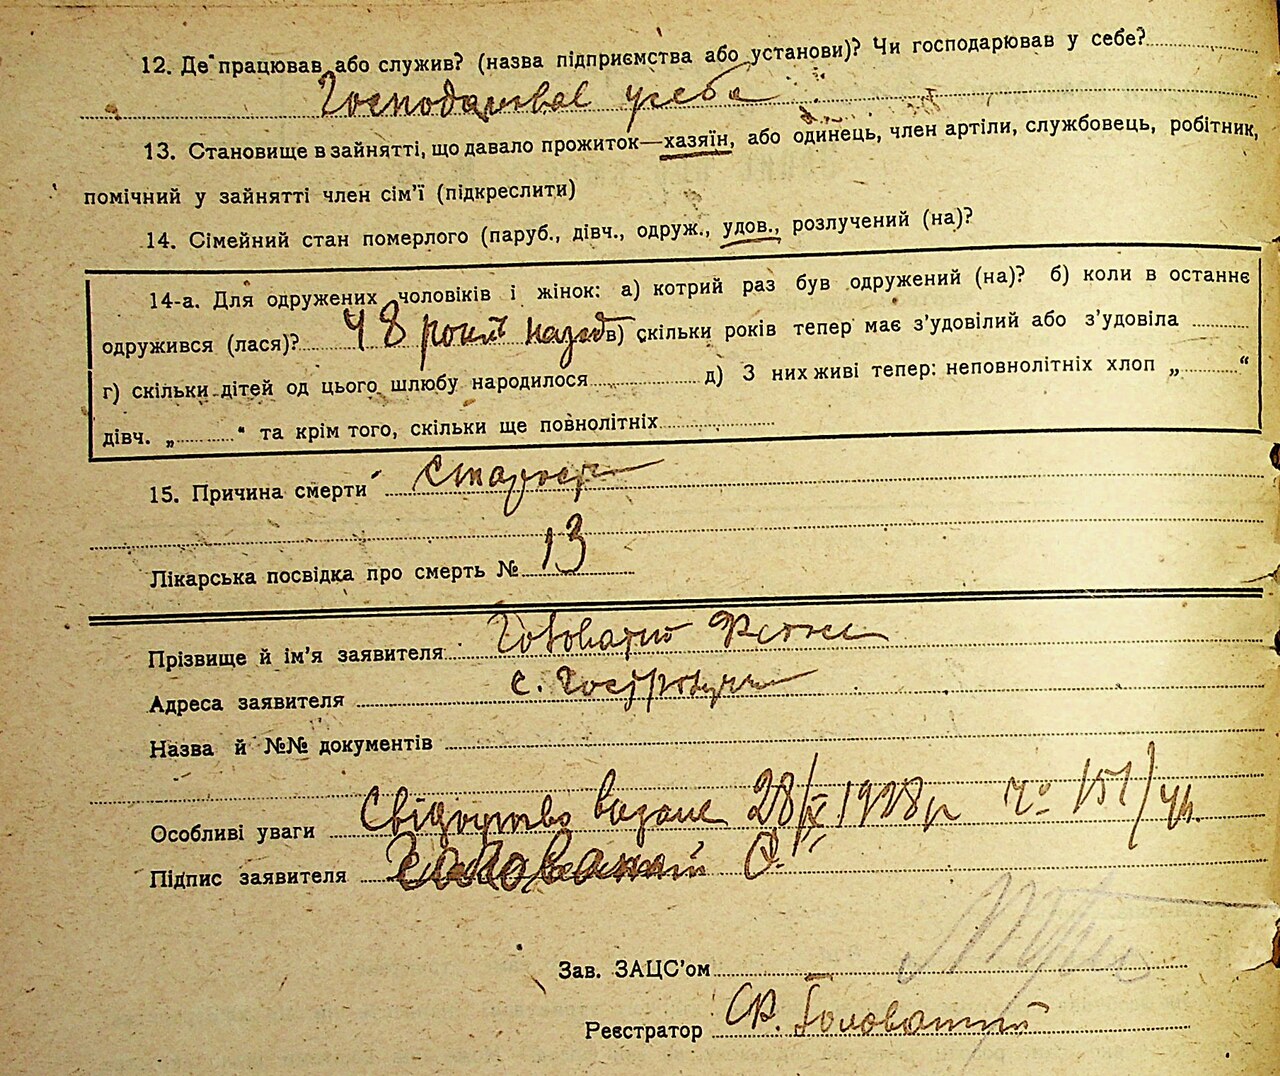 12. Де працював або служив? (назва підприємства або установи)? Чи господарював у себе?
Господарював у себе
13. Становище в зайнятті, що давало прожиток—хазяїн, або одинець, член артіли, службовець, робітник,
помічний у зайнятті член сім'ї (підкреслити)
14. Сімейний стан померлого (паруб., дівч., одруж., удов., розлучений (на)?
14-а. Для одружених чоловіків і жінок: а) котрий раз був одружений (на)? б) коли в останнє
одружився (лася)? 48 років назад в) скільки років тепер має з'удовілий або з'удовіла
г) скільки дітей од цього шлюбу народилося д) З них живі тепер: неповнолітніх хлоп „ “
дівч. „ “ та крім того, скільки ще повнолітніх
15. Причина смерти Старость
Лікарська посвідка про смерть № 13
Прізвище й ім'я заявителя Головатий
Адреса заявителя с.
Назва й №№ документів
Особливі уваги Свідоцтво видане 28/X 1928 р 151/
Підпис заявителя Головатий
Зав. ЗАЦС'ом
Реєстратор Ф. Головатий